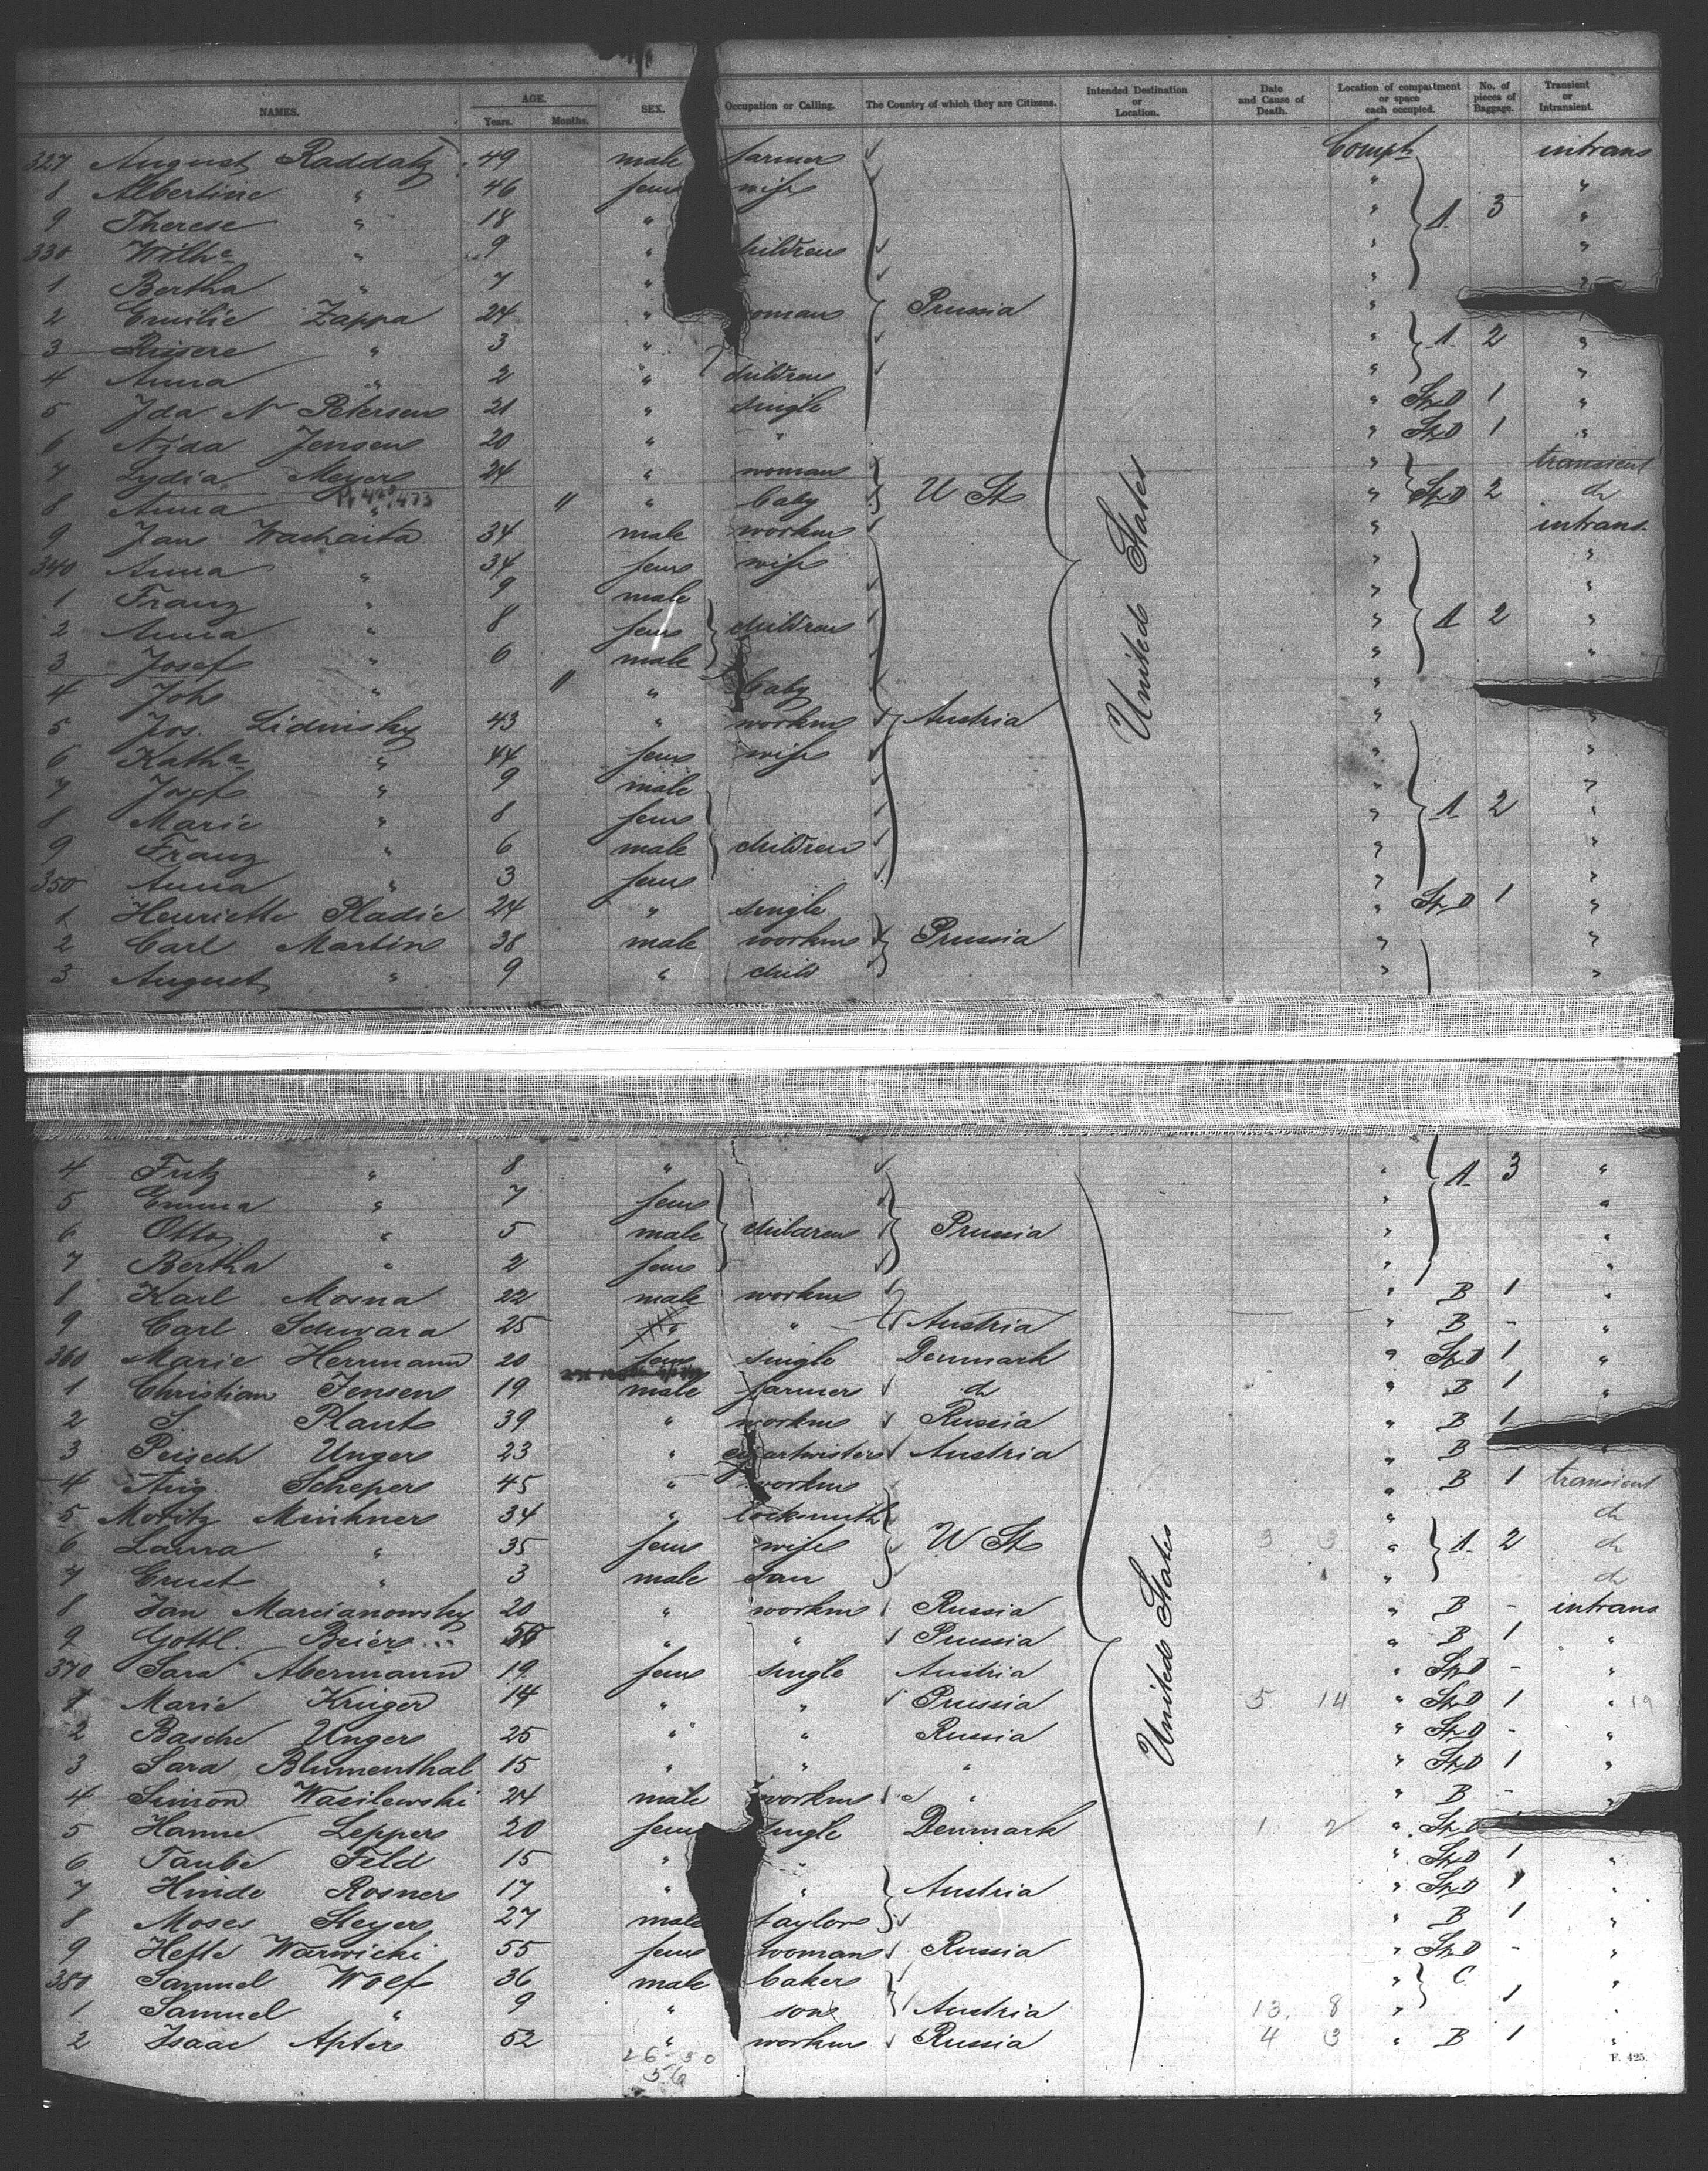 NAMES. AGE. Years. Months. SEX. Occupation or Calling. The Country of which they are Citizens. Intended Destination or Location. Date and Cause of Death. Location of compartment or space each occupied. No. of pieces of Baggage. Transient or Intransient.
327 August Raddatz 49 male farmer Compt intrans
8 Albertine " 46 fem wife " "
9 Therese " 18 " " A 3 "
330 Wilhe " 9 " hildren " "
1 Bertha " 7 " " "
2 Emilie Zappa 24 " oman Prussia "
3 " 3 " " A 2 "
4 Anna " 2 " children " "
5 Ida N Petersen 21 " single " St D 1 "
6 Jensen 20 " " " St D 1 "
7 Lydia Meyer 24 " woman " transient
8 Anna " 11 " baby U St " St D 2 do
9 Jan Wachaita 34 male workm " intrans
340 Anna " 34 fem wife " "
1 Franz " 9 male " "
2 Anna " 8 fem children " A 2 "
3 Josef " 6 male " "
4 Joh " 11 " baby "
United States
5 Jos. Lidinsky 43 " workm Austria " "
6 Katha " 44 fem wife " "
7 Josef " 9 male " "
8 Marie " 8 fem " A 2 "
9 Franz " 6 male children " "
350 Anna " 3 fem " "
1 Henriette Pladie 24 " single " St D 1 "
2 Carl Martin 38 male workm Prussia " "
3 August " 9 " child " "
4 Fritz " 8 " " A 3 "
5 Emma " 7 fem " "
6 Otto " 5 male children Prussia " "
7 Bertha " 2 fem " "
8 Karl Mosna 22 male workm " B 1 "
9 Carl Schwara 25 " " Austria " B - "
360 Marie Herrmann 20 fem single Denmark " St D 1 "
1 Christian Jensen 19 male farmer do " B 1 "
2 S. Plant 39 " workm Russia " B 1
3 Peisech Unger 23 " cigartwister Austria " B "
4 Aug. Scheper 45 " workm " B 1 transient
5 Moritz Minkner 34 " locksmith " do
6 Laura " 35 fem wife U St 3 3 " A 2 do
7 Ernst " 3 male son " do
8 Jan Marcianowsky 20 " workm Russia " B - intrans
9 Gottl. Beier " " Prussia " B 1 "
United States
370 Sara Abermann 19 fem single Austria " St D - "
1 Marie Krüger 14 " " Prussia 5 14 " St D 1 " 19
2 Basche Unger 25 " " Russia " St D - "
3 Sara Blumenthal 15 " " " " St D 1 "
4 Simon Wasilewski 24 male workm " " B - "
5 Hanne Lepper 20 fem ingle Denmark 1 2 " St D
6 Taube Feld 15 " " " St D 1 "
7 Hinde Rosner 17 " " Austria " St D 1 "
8 Moses Steyer 27 male taylor " B 1 "
9 Hette Warwicki 55 fem woman Russia " St D - "
380 Samuel Wolf 36 male baker " C "
1 Samuel " 9 " son Austria 13, 8 " 1 "
2 Isaac Apter 52 " workm Russia 4 3 " B 1 "
26-30
56
F. 425.